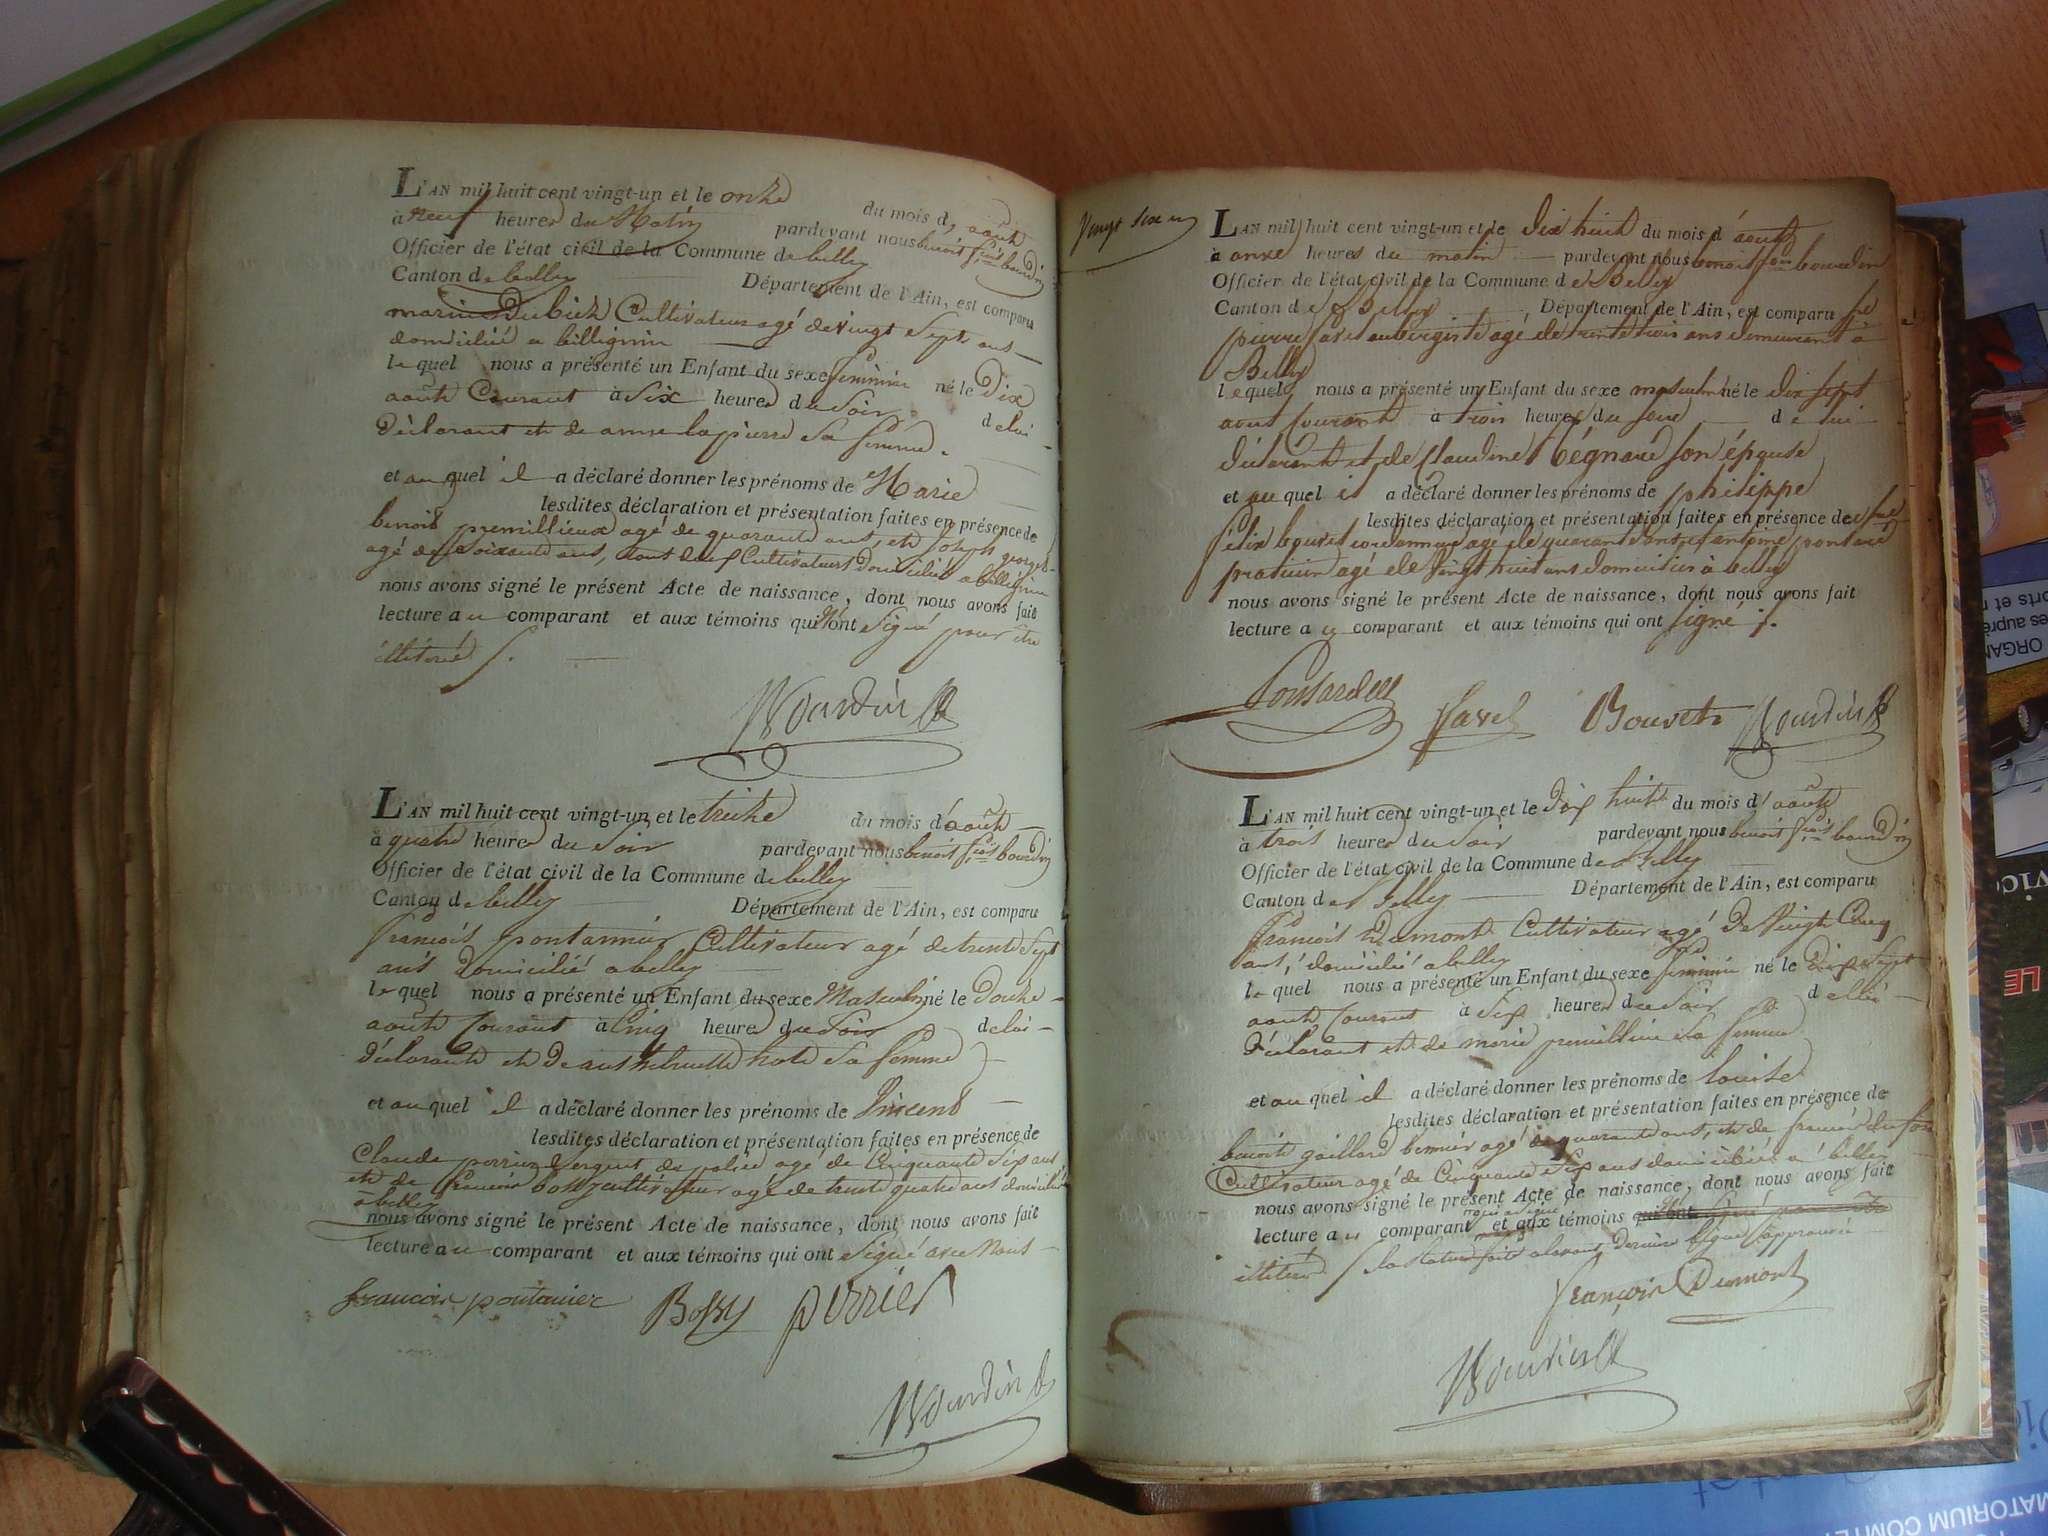 L'AN mil huit cent vingt-un et le onze du mois d'août
à neuf heures du Matin pardevant nous benoit f.ois bourdin
Officier de l'état civil de la Commune de belley
Canton de belley Département de l'Ain, est comparu
marin Dubiez Cultivateur agé de vingt Sept ans
domicilié a billignin
le quel nous a présenté un Enfant du sexe feminin né le Dix
août Courant à Six heures du Soir de lui
Déclarant et de anne lapierre Sa femme.
et au quel il a déclaré donner les prénoms de Marie
lesdites déclaration et présentation faites en présence de
benoit premillieux agé de quarante ans, et joseph georges
agé de soixante ans, tout deux Cultivateurs Domiciliés a billignin
nous avons signé le présent Acte de naissance, dont nous avons fait
lecture au comparant et aux témoins qui N'ont Signé pour être
illitéré
Bourdin
L'AN mil huit cent vingt-un et le treize du mois d'août
à quatre heures du Soir pardevant nous benoit f.ois bourdin
Officier de l'état civil de la Commune de belley
Canton de belley Département de l'Ain, est comparu
françois pontannier Cultivateur agé de trente Sept
ans Domicilié a belley
le quel nous a présenté un Enfant du sexe Masculin né le Douze
août Courant à Cinq heures du Soir de lui
Déclarant et De anthelmette Sa femme
et au quel il a déclaré donner les prénoms de Vincent
lesdites déclaration et présentation faites en présence de
Claude perrier Sergent de police agé de Cinquante Six ans
et de françois bossy cultivateur agé de trente quatre ans domiciliés
a belley
nous avons signé le présent Acte de naissance, dont nous avons fait
lecture au comparant et aux témoins qui ont Signé avec Nous
francois pontanier Bossy perrier
Bourdin
Vingt Sixe
L'AN mil huit cent vingt-un et le Dix huit du mois d'août
à onze heures du matin pardevant nous benoit f.ois bourdin
Officier de l'état civil de la Commune de Belley
Canton de Belley Département de l'Ain, est comparu
pierre favel aubergiste agé de trente trois ans demeurant à
Belley
le quel nous a présenté un Enfant du sexe masculin né le dix sept
aout courant à trois heures du soire de lui
déclarant et de Claudine son épouse
et au quel il a déclaré donner les prénoms de philippe
lesdites déclaration et présentation faites en présence de
félix bouvet cordonnier agé de quarante ans et antoine
agé de vingt huit ans domiciliés à belley
nous avons signé le présent Acte de naissance, dont nous avons fait
lecture au comparant et aux témoins qui ont signé
favel Bouvet Bourdin
L'AN mil huit cent vingt-un et le Dix huit du mois d'août
à trois heures du Soir pardevant nous benoit f.ois bourdin
Officier de l'état civil de la Commune de Belley
Canton de Belley Département de l'Ain, est comparu
François Dumont Cultivateur agé De Vingt Cinq
ans, domicilié a belley
le quel nous a présenté un Enfant du sexe feminin né le Dix Sept
août Courant à Six heures du Soir de lui
Déclarant et de marie premillieu Sa femme
et au quel il a déclaré donner les prénoms de louise
lesdites déclaration et présentation faites en présence de
benoit gaillard agé de quarante ans, et de
Cultivateur agé de Cinquante Six ans domiciliés a belley
nous avons signé le présent Acte de naissance, dont nous avons fait
lecture au comparant et aux témoins qui n'ont Signé pour être
illitéré
françois Dumont
Bourdin
ORGAN
LE
MATORIUM COMTE